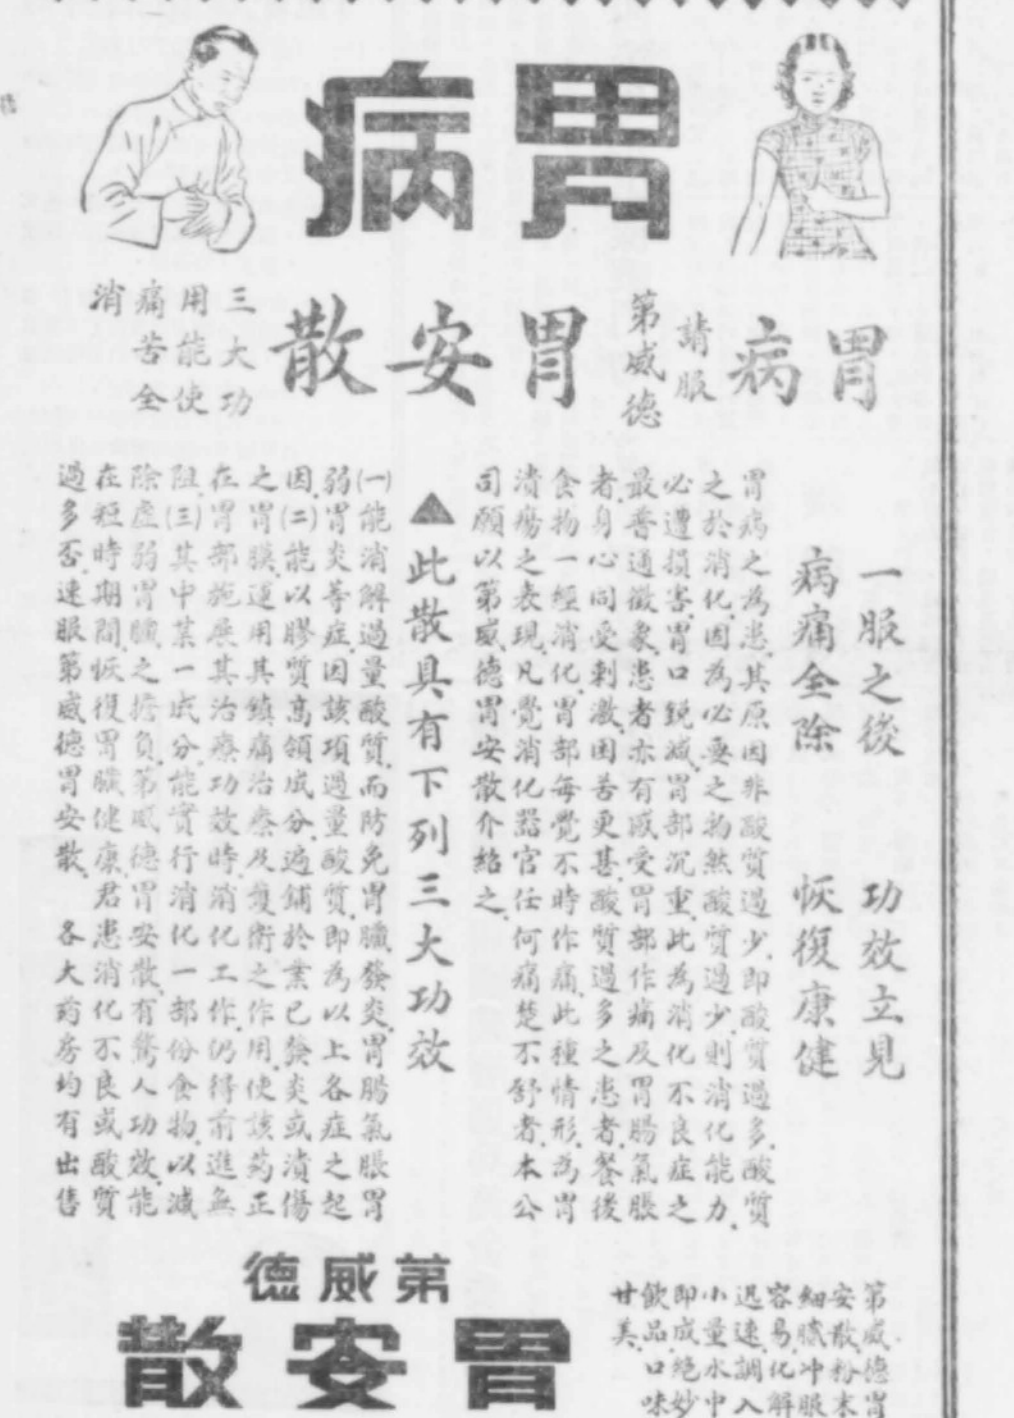 胃病
胃病
請服
第威德
胃安散
三大功
用能使
痛苦全
消
一服之後　功效立見
病痛全除　恢復康健
胃病之為患．其原因非酸質過少．即酸質過多．酸質
之於消化．因為必要之物．然酸質過少．則消化能力．
必遭損害．胃口銳減．胃部沉重．此為消化不良症之
最普通徵象．患者亦有感受胃部作痛及胃腸氣脹
者．身心同受刺激．困苦更甚．酸質過多之患者．餐後
食物一經消化．胃部每覺不時作痛．此種情形．為胃
潰瘍之表現．凡覺消化器官任何痛楚不舒者．本公
司願以第威德胃安散介紹之．
▲此散具有下列三大功效
(一)能消解過量酸質．而防免胃臟發炎．胃腸氣脹胃
弱胃炎等症．因該項過量酸質．即為以上各症之起
因．(二)能以膠質高領成分．遍鋪於業已發炎或潰傷
之胃膜．運用其鎮痛治療及護衛之作用．使該药正
在胃部施展其治療功效時．消化工作．仍得前進無
阻．(三)其中某一成分．能實行消化一部份食物．以減
除虛弱胃臟之擔負．第威德胃安散．有驚人功效．能
在短時期間．恢復胃臟健康．君患消化不良或酸質
過多否．速服第威德胃安散．　各大药房均有出售
第威德胃
安散粉末
細膩冲服
容易化解
迅速調入
小量水中
即成絕妙
飲品口味
甘美．
第威德
胃安散